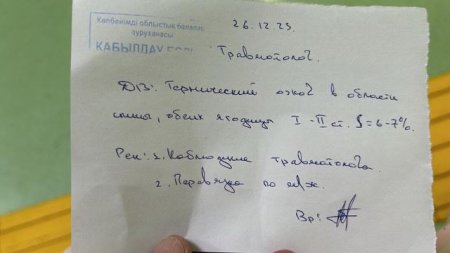 Көпбейінді облыстық балалар
ауруханасы
ҚАБЫЛДАУ
26.12.25
Травматолог.
DS: Термический ожог в области
спины, обеих ягодиц I-II ст. S=6-7%.
Рек: 1. Наблюдение травматолога
2. Перевязка по м/ж.
Вр: